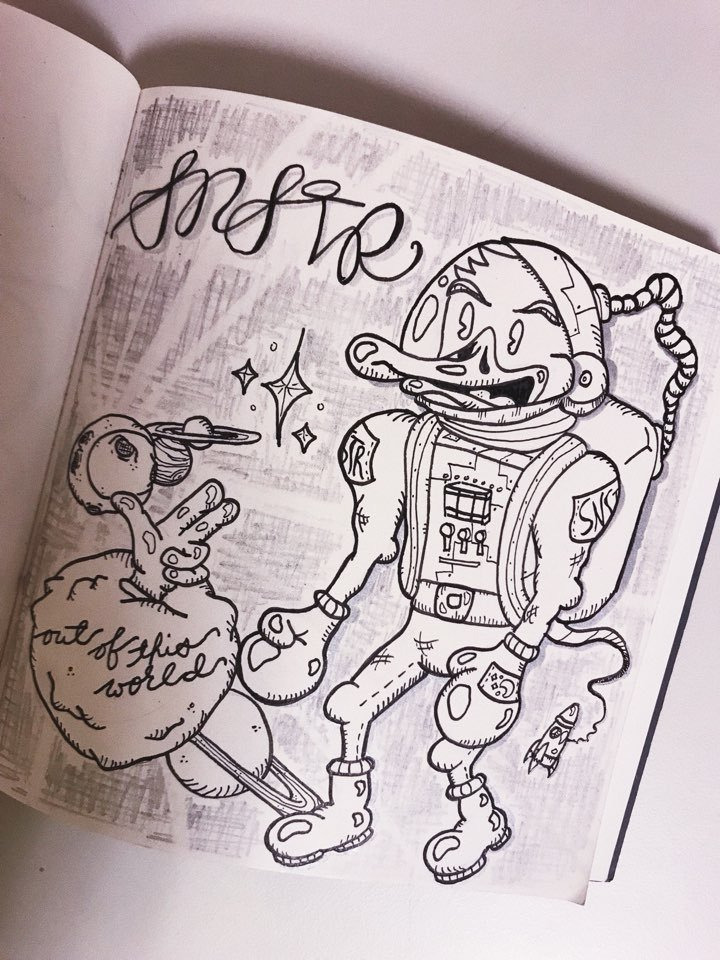 SNSTR
STR
SNS
out of this
world